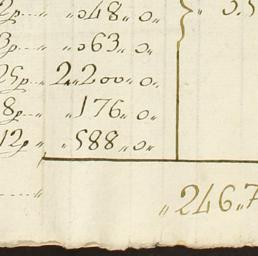 2p „ 048 „ 0 „
3p „ 063 „ 0 „
25p 2„200 „ 0 „
8p „ 176 „ 0 „
12p „ 588 „ 0 „
„ 246„7